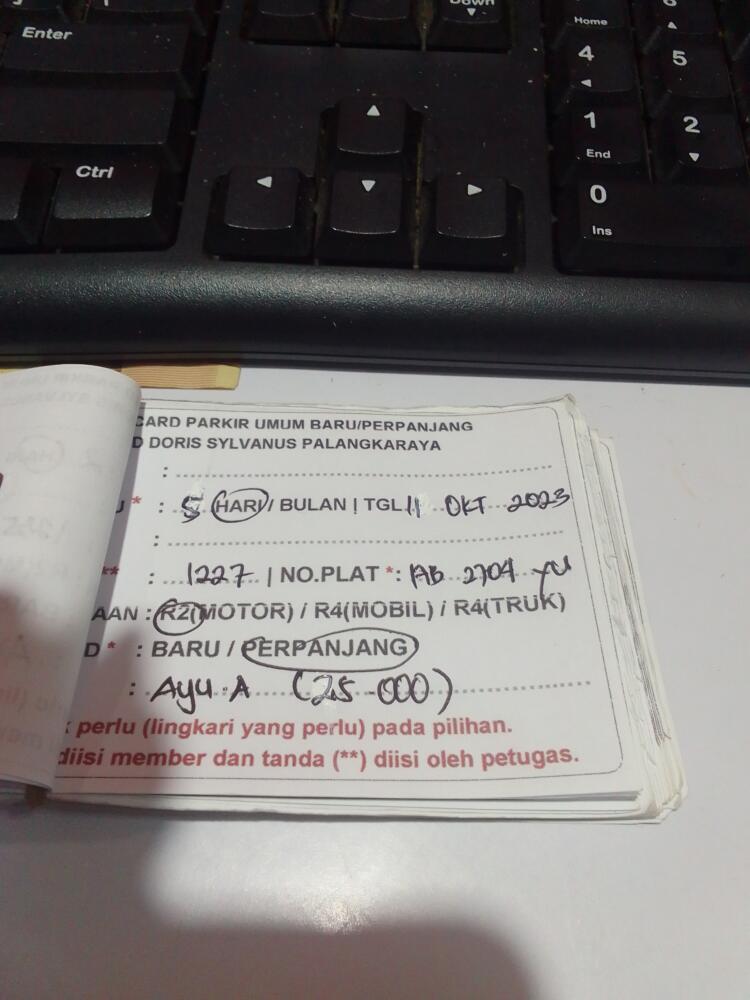 Down
Enter
Home
4
5
Ctrl
1
2
End
0
Ins
CARD PARKIR UMUM BARU/PERPANJANG
D DORIS SYLVANUS PALANGKARAYA
: 
* : 5 HARI / BULAN | TGL 11 OKT 2023
:
** : 1227 | NO.PLAT *: AB 2704 YU
AAN : R2(MOTOR) / R4(MOBIL) / R4(TRUK)
D * : BARU / PERPANJANG
: Ayu A (25.000)
perlu (lingkari yang perlu) pada pilihan.
diisi member dan tanda (**) diisi oleh petugas.